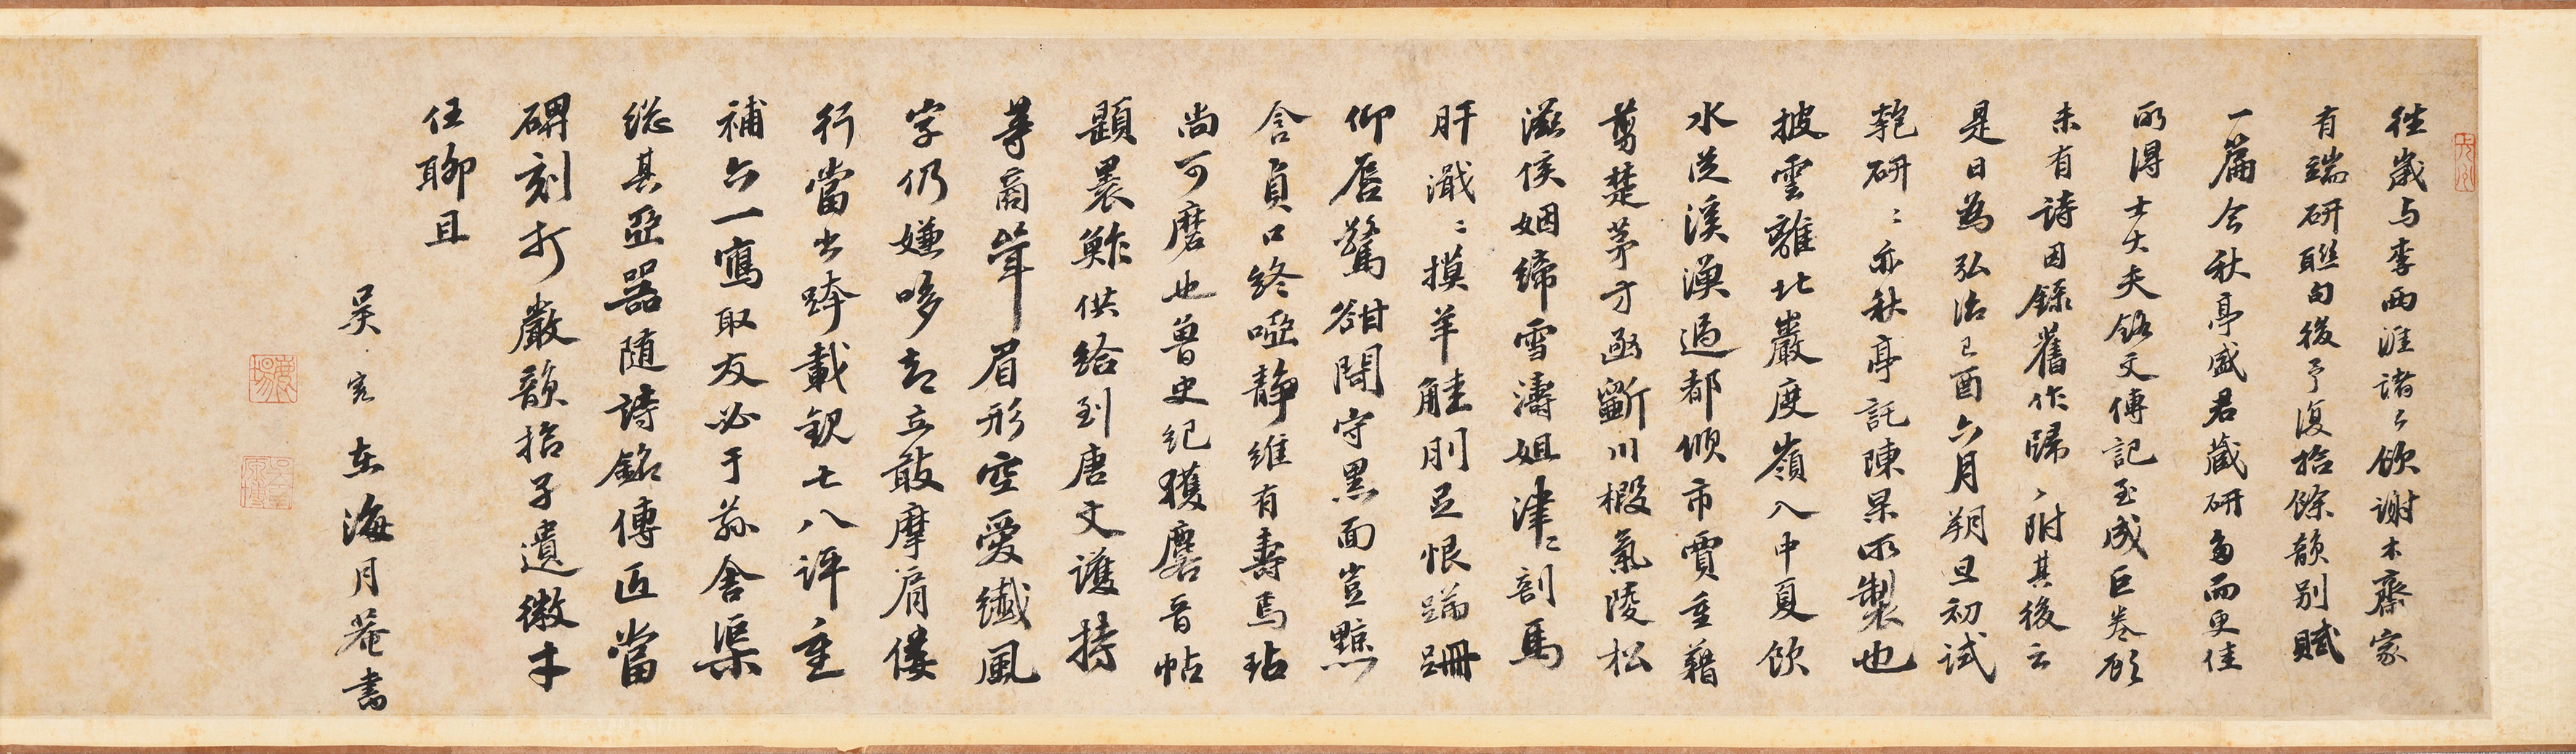 徃歲与李西涯諸公飲謝木齋家
有端研聯句後予復拾餘韻別賦
一篇今秋亭盛君蔵研多而更佳
所得士大夫銘文傳記至成巨卷顧
未有詩因録舊作歸之附其後云
是日為弘治己酉六月朔旦初試
匏研研亦秋亭託陳杲所製也
披雲離北巖度嶺入中夏飲
水從溪漁過都傾市賈重藉
蒭楚茅方函斵川椴氣陵松
滋侯姻締雪濤姐津津剖馬
肝濈濈摸羊觟刖足恨蹣跚
仰唇驚㗁閜守黑面豈黥
含貞口終啞静維有壽焉玷
尚可磨也魯史紀獲麐晉帖
題褁鮓供給到唐文護持
等商斝眉形空愛纎風
字仍嫌哆却立敢摩肩僂
行當出跨載歌七八評重
補六一寫取友必于蓀舍渠
總其亞器随詩銘傳匠當
碑刻打嚴韻拾子遺微才
任聊且
吳寛東海月菴書